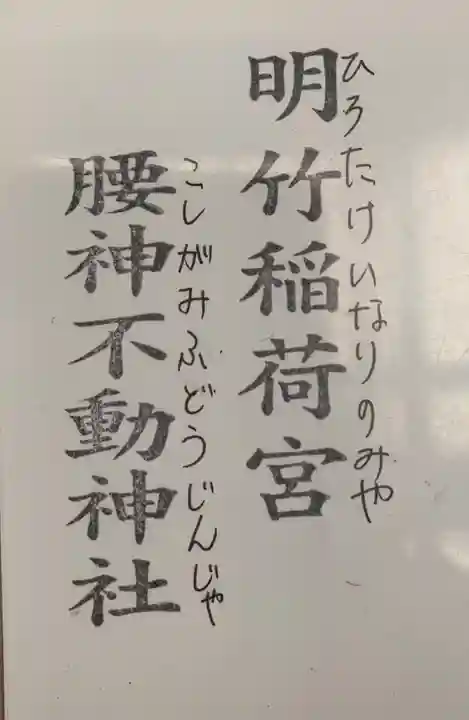 明竹稲荷宮
ひろたけいなりのみや
腰神不動神社
こしがみふどうじんじゃ